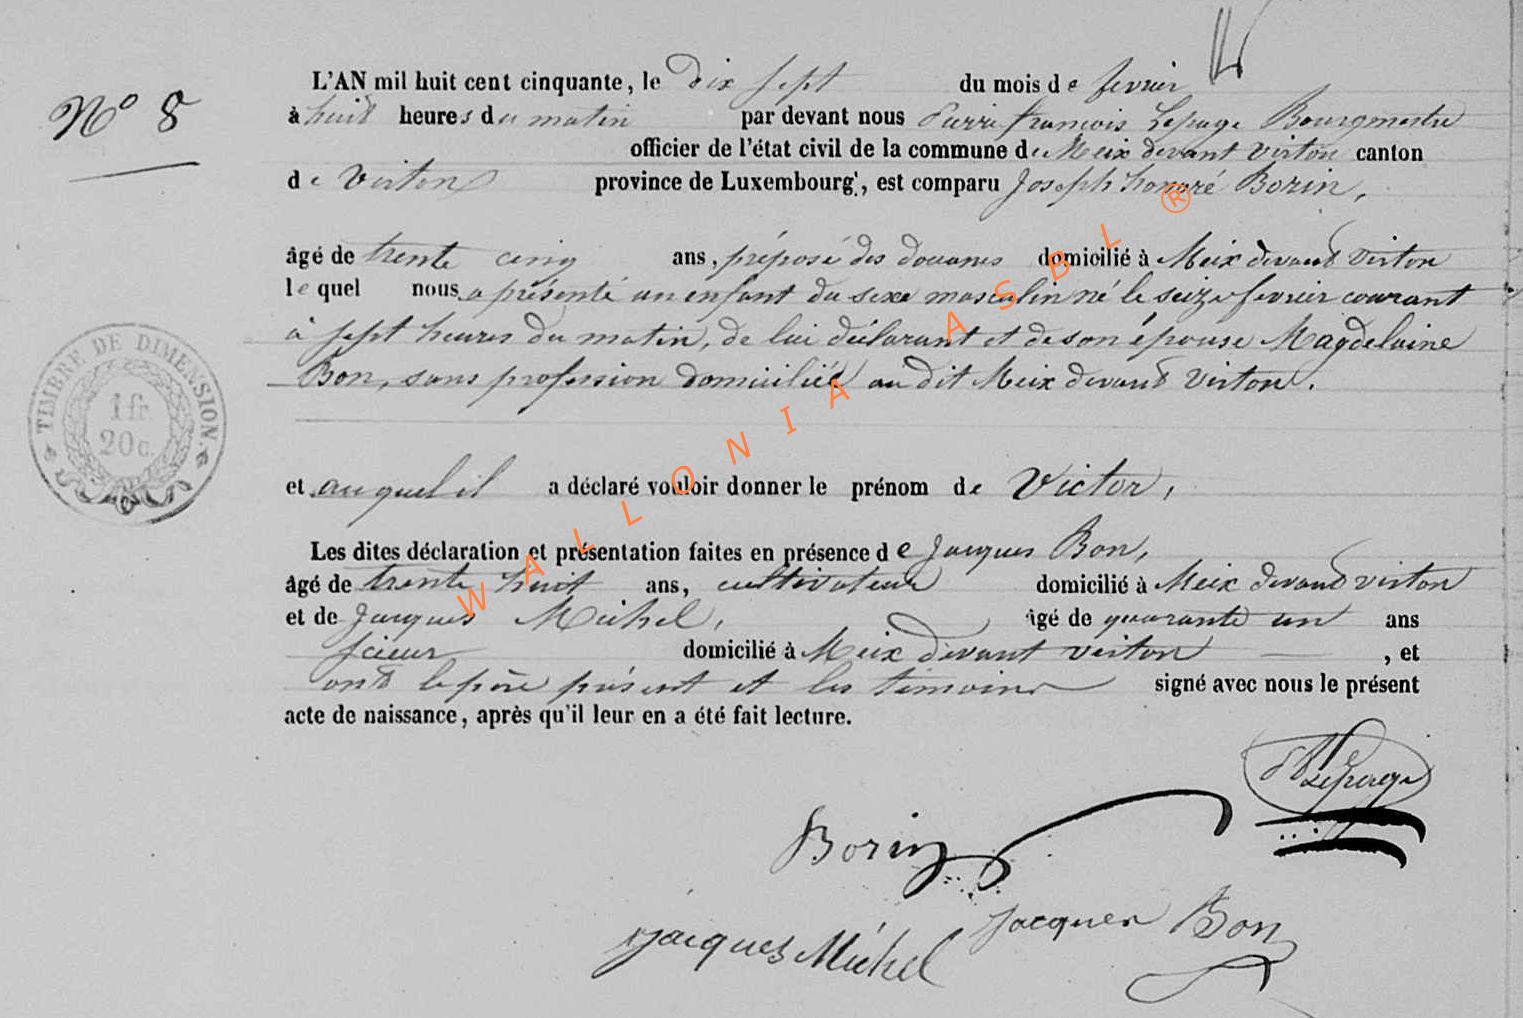 L'AN mil huit cent cinquante, le dix sept du mois de fevrier
N° 8
à huit heures du matin par devant nous Pierre François Lepage Bourgmestre
officier de l'état civil de la commune de Meix devant Virton canton
de Virton province de Luxembourg, est comparu Joseph honoré Borin,
âgé de trente cinq ans, préposé des douanes domicilié à Meix devant Virton
lequel nous a présenté un enfant du sexe masculin né le seize fevrier courant
à sept heures du matin, de lui déclarant et de son épouse Magdelaine
Bon, sans profession domiciliés au dit Meix devant Virton.
TIMBRE DE DIMENSION.
1 fr.
20 c.
et auquel il a déclaré vouloir donner le prénom de Victor,
Les dites déclaration et présentation faites en présence de Jacques Bon,
âgé de trente huit ans, cultivateur domicilié à Meix devant virton
et de Jacques Michel, âgé de quarante un ans
scieur domicilié à Meix devant virton , et
ont le père présent et les témoins signé avec nous le présent
acte de naissance, après qu'il leur en a été fait lecture.
Lepage
Borin
Jacques Bon
Jacques Michel
WALLONIA ASBL ®